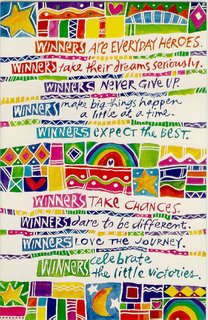 WINNERS ARE EVERYDAY HEROES.
WINNERS take their dreams seriously.
WINNERS NEVER GIVE UP.
WINNERS make big things happen
a little at a time.
WINNERS EXPECT THE BEST.
WINNERS TAKE CHANCES.
WINNERS dare to be different.
WINNERS LOVE THE JOURNEY.
WINNERS celebrate
the little victories.